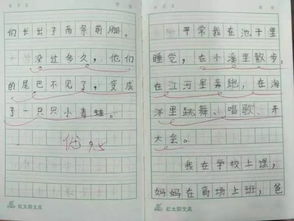 们长出了两条前腿。
没过多久，他们
的尾巴不见了，变成
了一只只小青蛙。
优 95
平常我在池子里
睡觉，在小溪里散步，
在江河里奔跑，在海
洋里跳舞、唱歌、开
大会。
我在学校上课，
妈妈在商场上班，爸